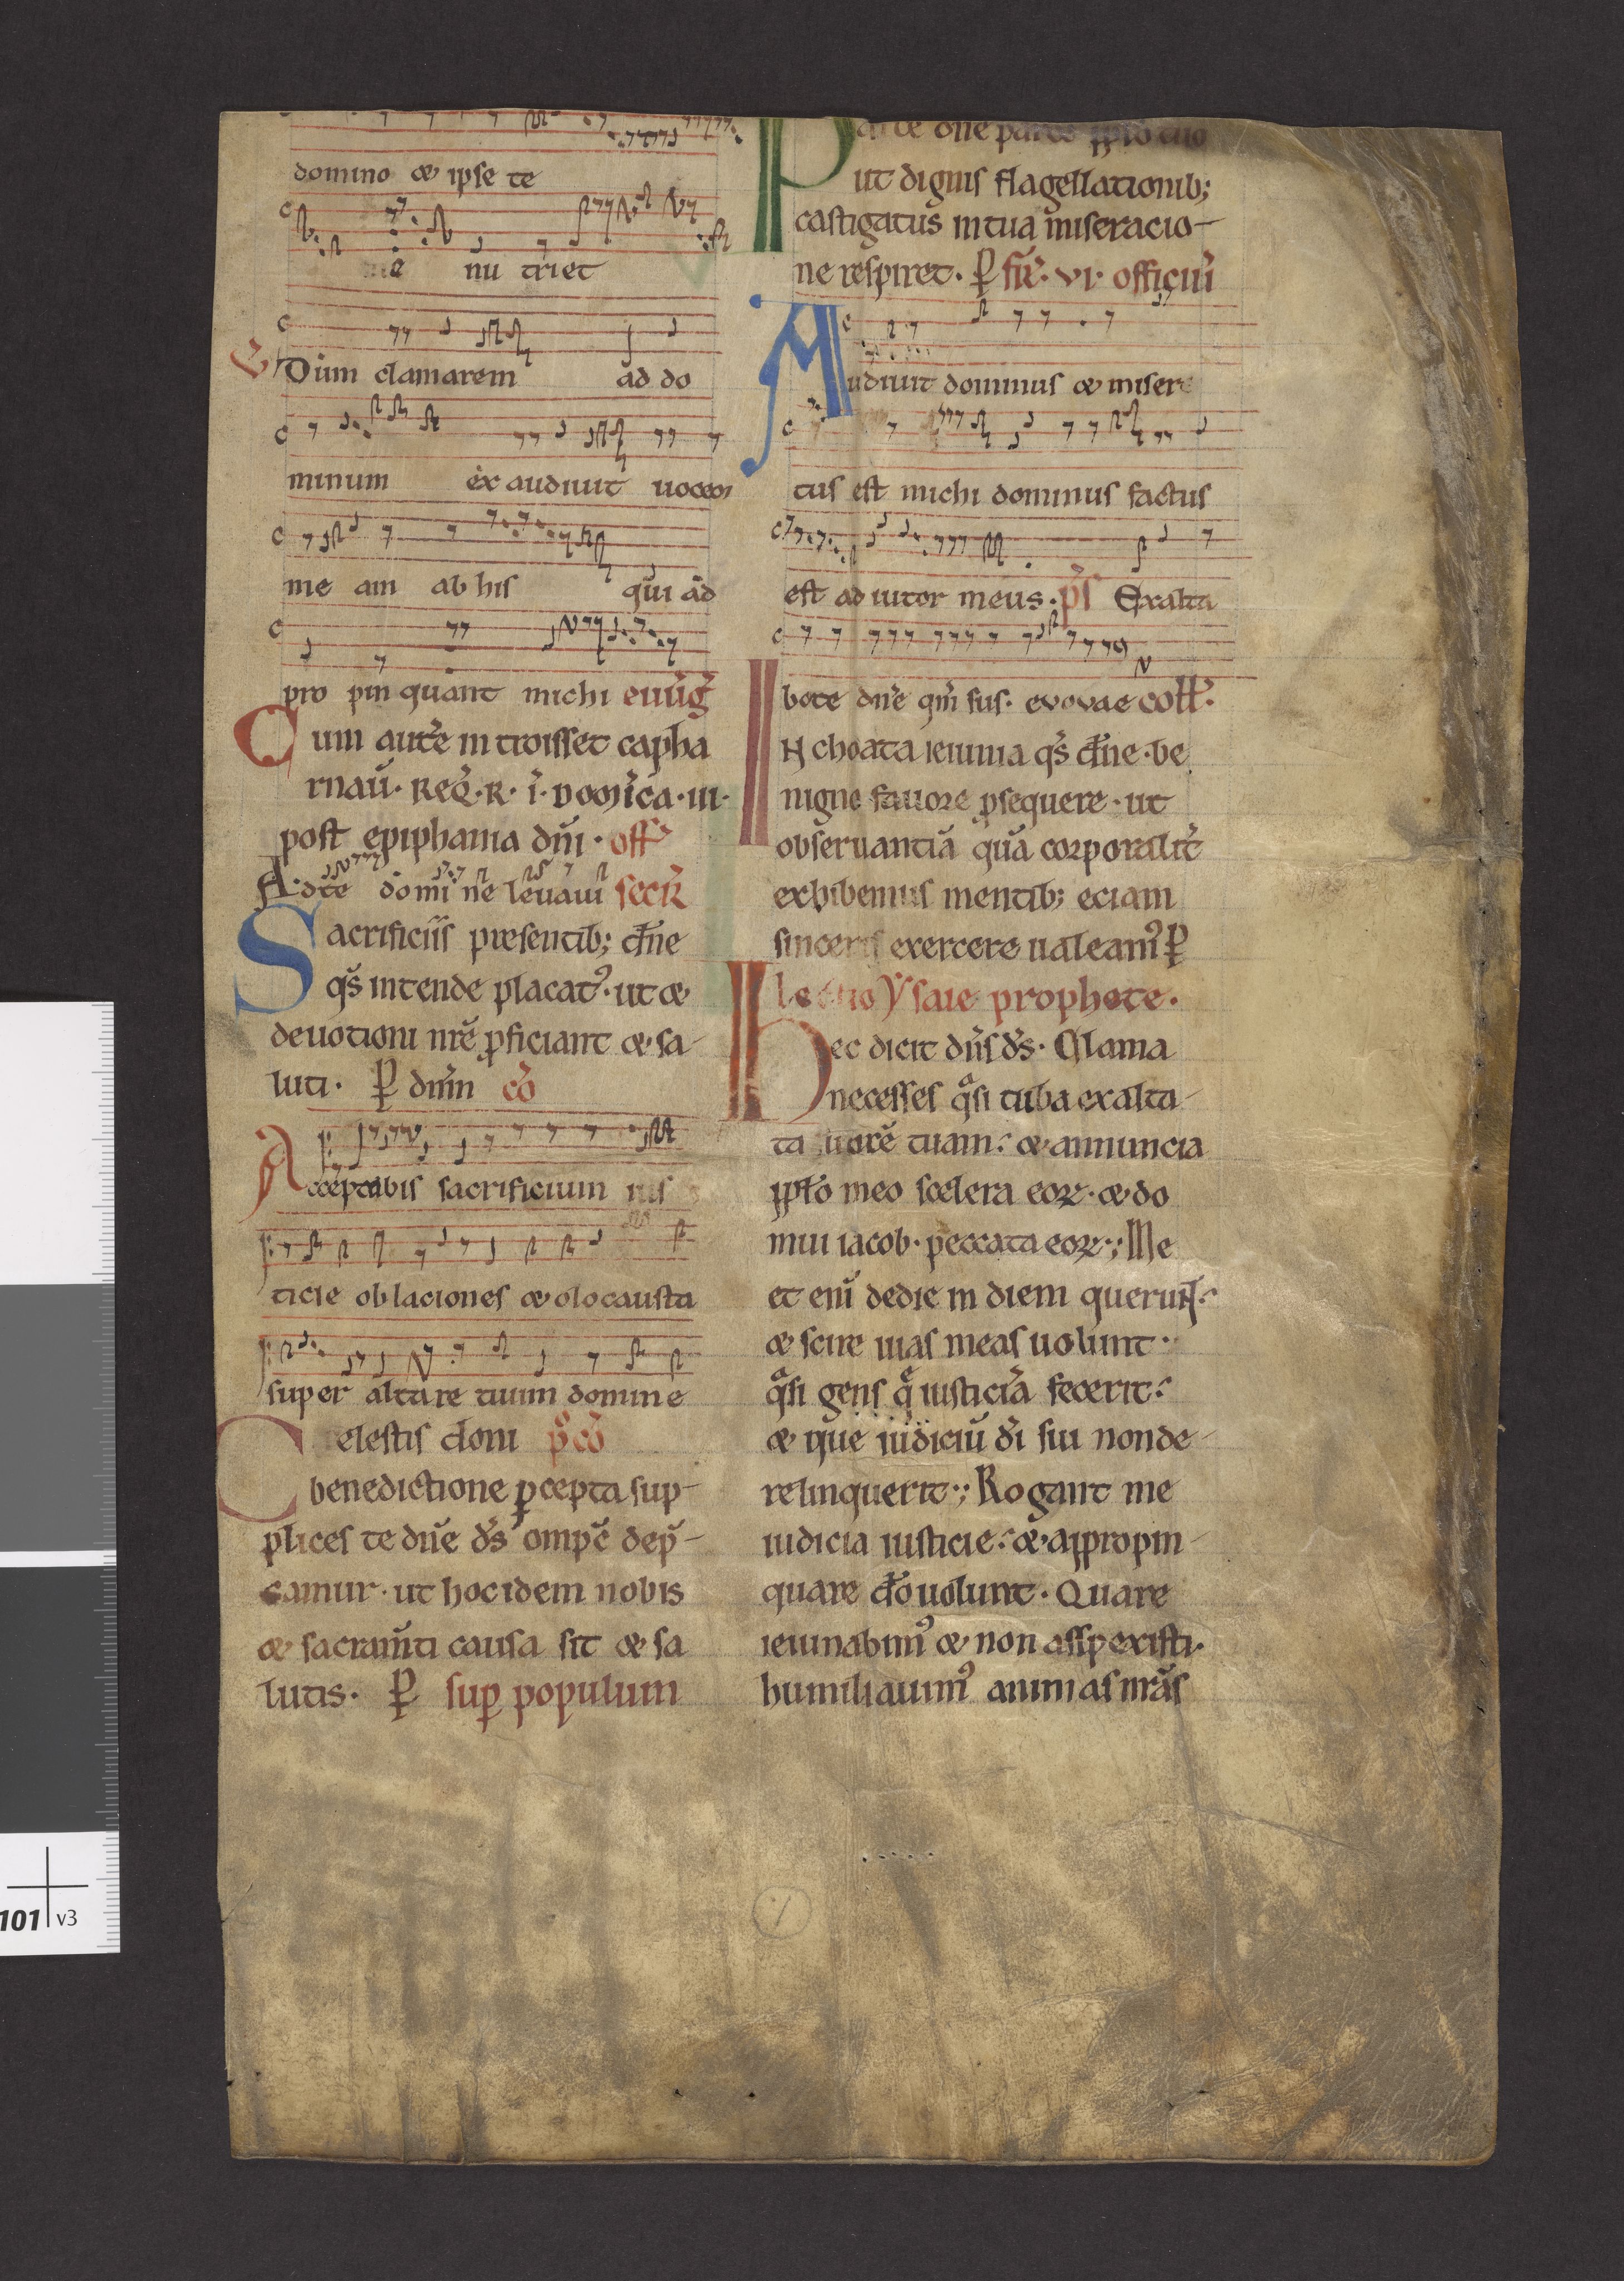 domino & ipse te
nu triet
V Dum clamarem ad do
minum exaudiuit uocem
me am ab his qui ad
pro pin quant michi euu̅g̅
Cum aute̅ introisset capha
rnau̅. REQ̅. R. i̅. DOMI̅CA. III.
post epiphania dn̅i. off̅
Ad te domi ne leuaui secr̅
Sacrificiis presentib; d̅ne
qs̅ intende placat᾽. ut &
deuotioni nr̅e ꝓficiant & sa-
luti. ꝑ dn̅m co̅
Acceptabis sacrificium ius
ticie oblaciones & olocausta
super altare tuum domine
Celestis doni p̅ co̅
benedictione ꝑcepta sup-
plices te dn̅e ds̅ omp̅c dep̅-
camur. ut hoc idem nobis
& sacram̅ti causa sit & sa
lutis. ꝑ suꝑ populum
Parce dn̅e parce ppl̅o tuo
ut dignis flagellationib;
castigatus in tua miseracio-
ne respiret. ꝑ fr̅. VI. officiu̅
Audiuit dominus & misere
tus est michi dominus factus
est ad iutor meus. ps̅ Exalta
bo te dn̅e qm̅ sus. evovae coll̅.
INchoata ieiunia qs̅ d̅ne. be
nigno fauore ꝓsequere. ut
obseruantia̅ qua̅ corporalit̅
exhibemus mentib; eciam
sinceris exercere ualeam᾽ ꝑ
lectio Ysaie prophete.
Hec dicit dn̅s ds̅. Clama
ne cesses qᵃsi tuba exalta
ta uoce̅ tuam. & annuncia
ppl̅o meo scelera eoꝝ. & do
mui iacob. peccata eoꝝ; Me
et eni̅ de die in diem querunt.
& scire uias meas uolunt.
qᵃsi gens q̅ iusticia̅ fecerit.
& que iudiciu̅ di̅ sui non de-
relinquerit; Rogant me
iudicia iusticie. & appropin-
quare d̅o uolunt. Quare
ieiunabim᾽ & non asspexisti.
humiliauim᾽ animas nr̅as
101 v3